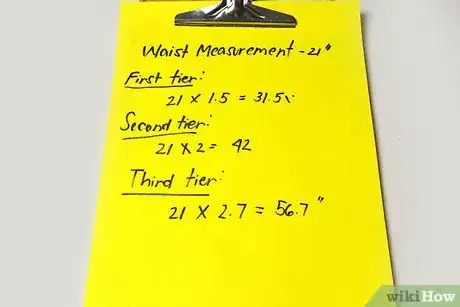 Waist Measurement - 21"
First tier:
21 x 1.5 = 31.5"
Second tier:
21 x 2 = 42
Third tier:
21 x 2.7 = 56.7"
wikiHow